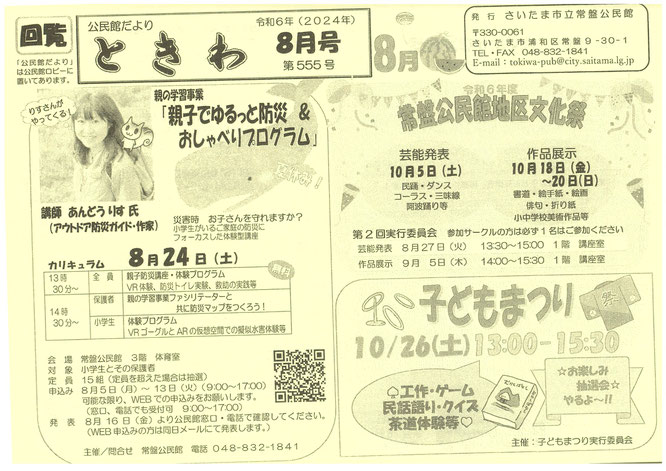 回覧
「公民館だより」
は公民館ロビーに
置いてあります。
公民館だより
ときわ
令和6年(2024年)
8月号
第555号
8月
発行 さいたま市立常盤公民館
〒330-0061
さいたま市浦和区常盤9-30-1
TEL・FAX 048-832-1841
E-mail : tokiwa-pub@city.saitama.lg.jp
りすさんが
やってくる!
親の学習事業
「親子でゆるっと防災 &
おしゃべりプログラム」
講師 あんどう りす 氏
(アウトドア防災ガイド・作家)
災害時 お子さんを守れますか?
小学生がいるご家庭の防災に
フォーカスした体験型講座
カリキュラム 8月24日(土)
無料
13時
30分~
全員
親子防災講座・体験プログラム
VR体験、防災トイレ実験、救助の実践等
14時
30分~
保護者
親の学習事業ファシリテーターと
共に防災マップをつくろう!
小学生
体験プログラム
VRゴーグルとARの仮想空間での疑似水害体験等
会場 常盤公民館 3階 体育室
対象 小学生とその保護者
定員 15組(定員を超えた場合は抽選)
申込み 8月5日(月)~13日(火)(9:00~17:00)
可能な限り、WEBでの申込みをお願いします。
(窓口、電話でも受付可 9:00~17:00)
発表 8月16日(金)より公民館窓口・電話で確認してください。
(WEB申込みの方は同日メールにて発表します。)
主催/問合せ 常盤公民館 電話 048-832-1841
令和6年度
常盤公民館地区文化祭
芸能発表
10月5日(土)
民踊・ダンス
コーラス・三味線
阿波踊り等
作品展示
10月18日(金)
~20日(日)
書道・絵手紙・絵画
俳句・折り紙
小中学校美術作品等
第2回実行委員会 参加サークルの方は必ず1名はご参加ください
芸能発表 8月27日(火) 13:30~15:00 1階 講座室
作品展示 9月5日(木) 14:00~15:30 1階 講座室
子どもまつり
祭
10/26(土)13:00-15:30
♤工作・ゲーム
民話語り・クイズ
茶道体験等♡
☆お楽しみ
抽選会☆
やるよ~!!
主催:子どもまつり実行委員会